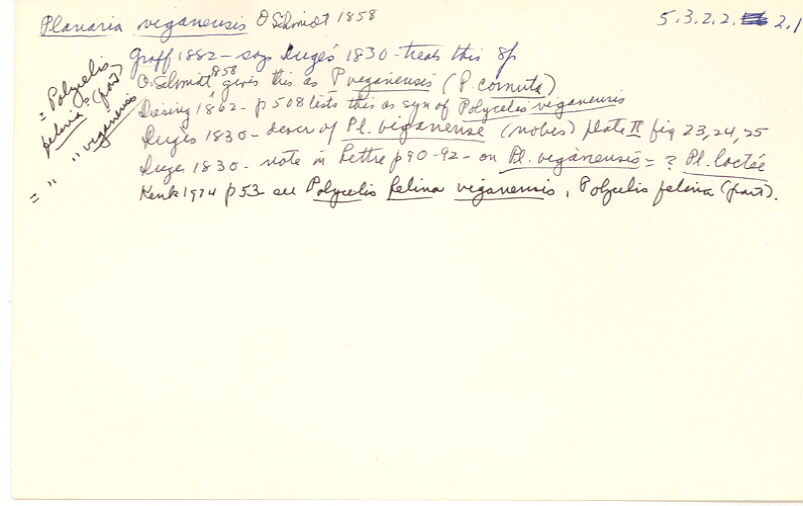 Planaria viganensis O Schmidt 1858
5.3.2.2. 2.1
Graff 1882 - says Dugès 1830 - treats this sp
O. Schmidt 1858 gives this as P viganensis (P. cornuta)
Diesing 1862 - p 508 lists this as syn of Polycelis viganensis
Dugès 1830 - descr of Pl. viganense (nobis) plate II fig 23, 24, 25
Duges 1830 - note in Lettre p 90-92 - on Pl. viganensis = ? Pl. lactée
Kenk 1974 p 53 - all Polycelis felina viganensis, Polycelis felina (part).
= Polycelis
felina (part)
= " " viganensis